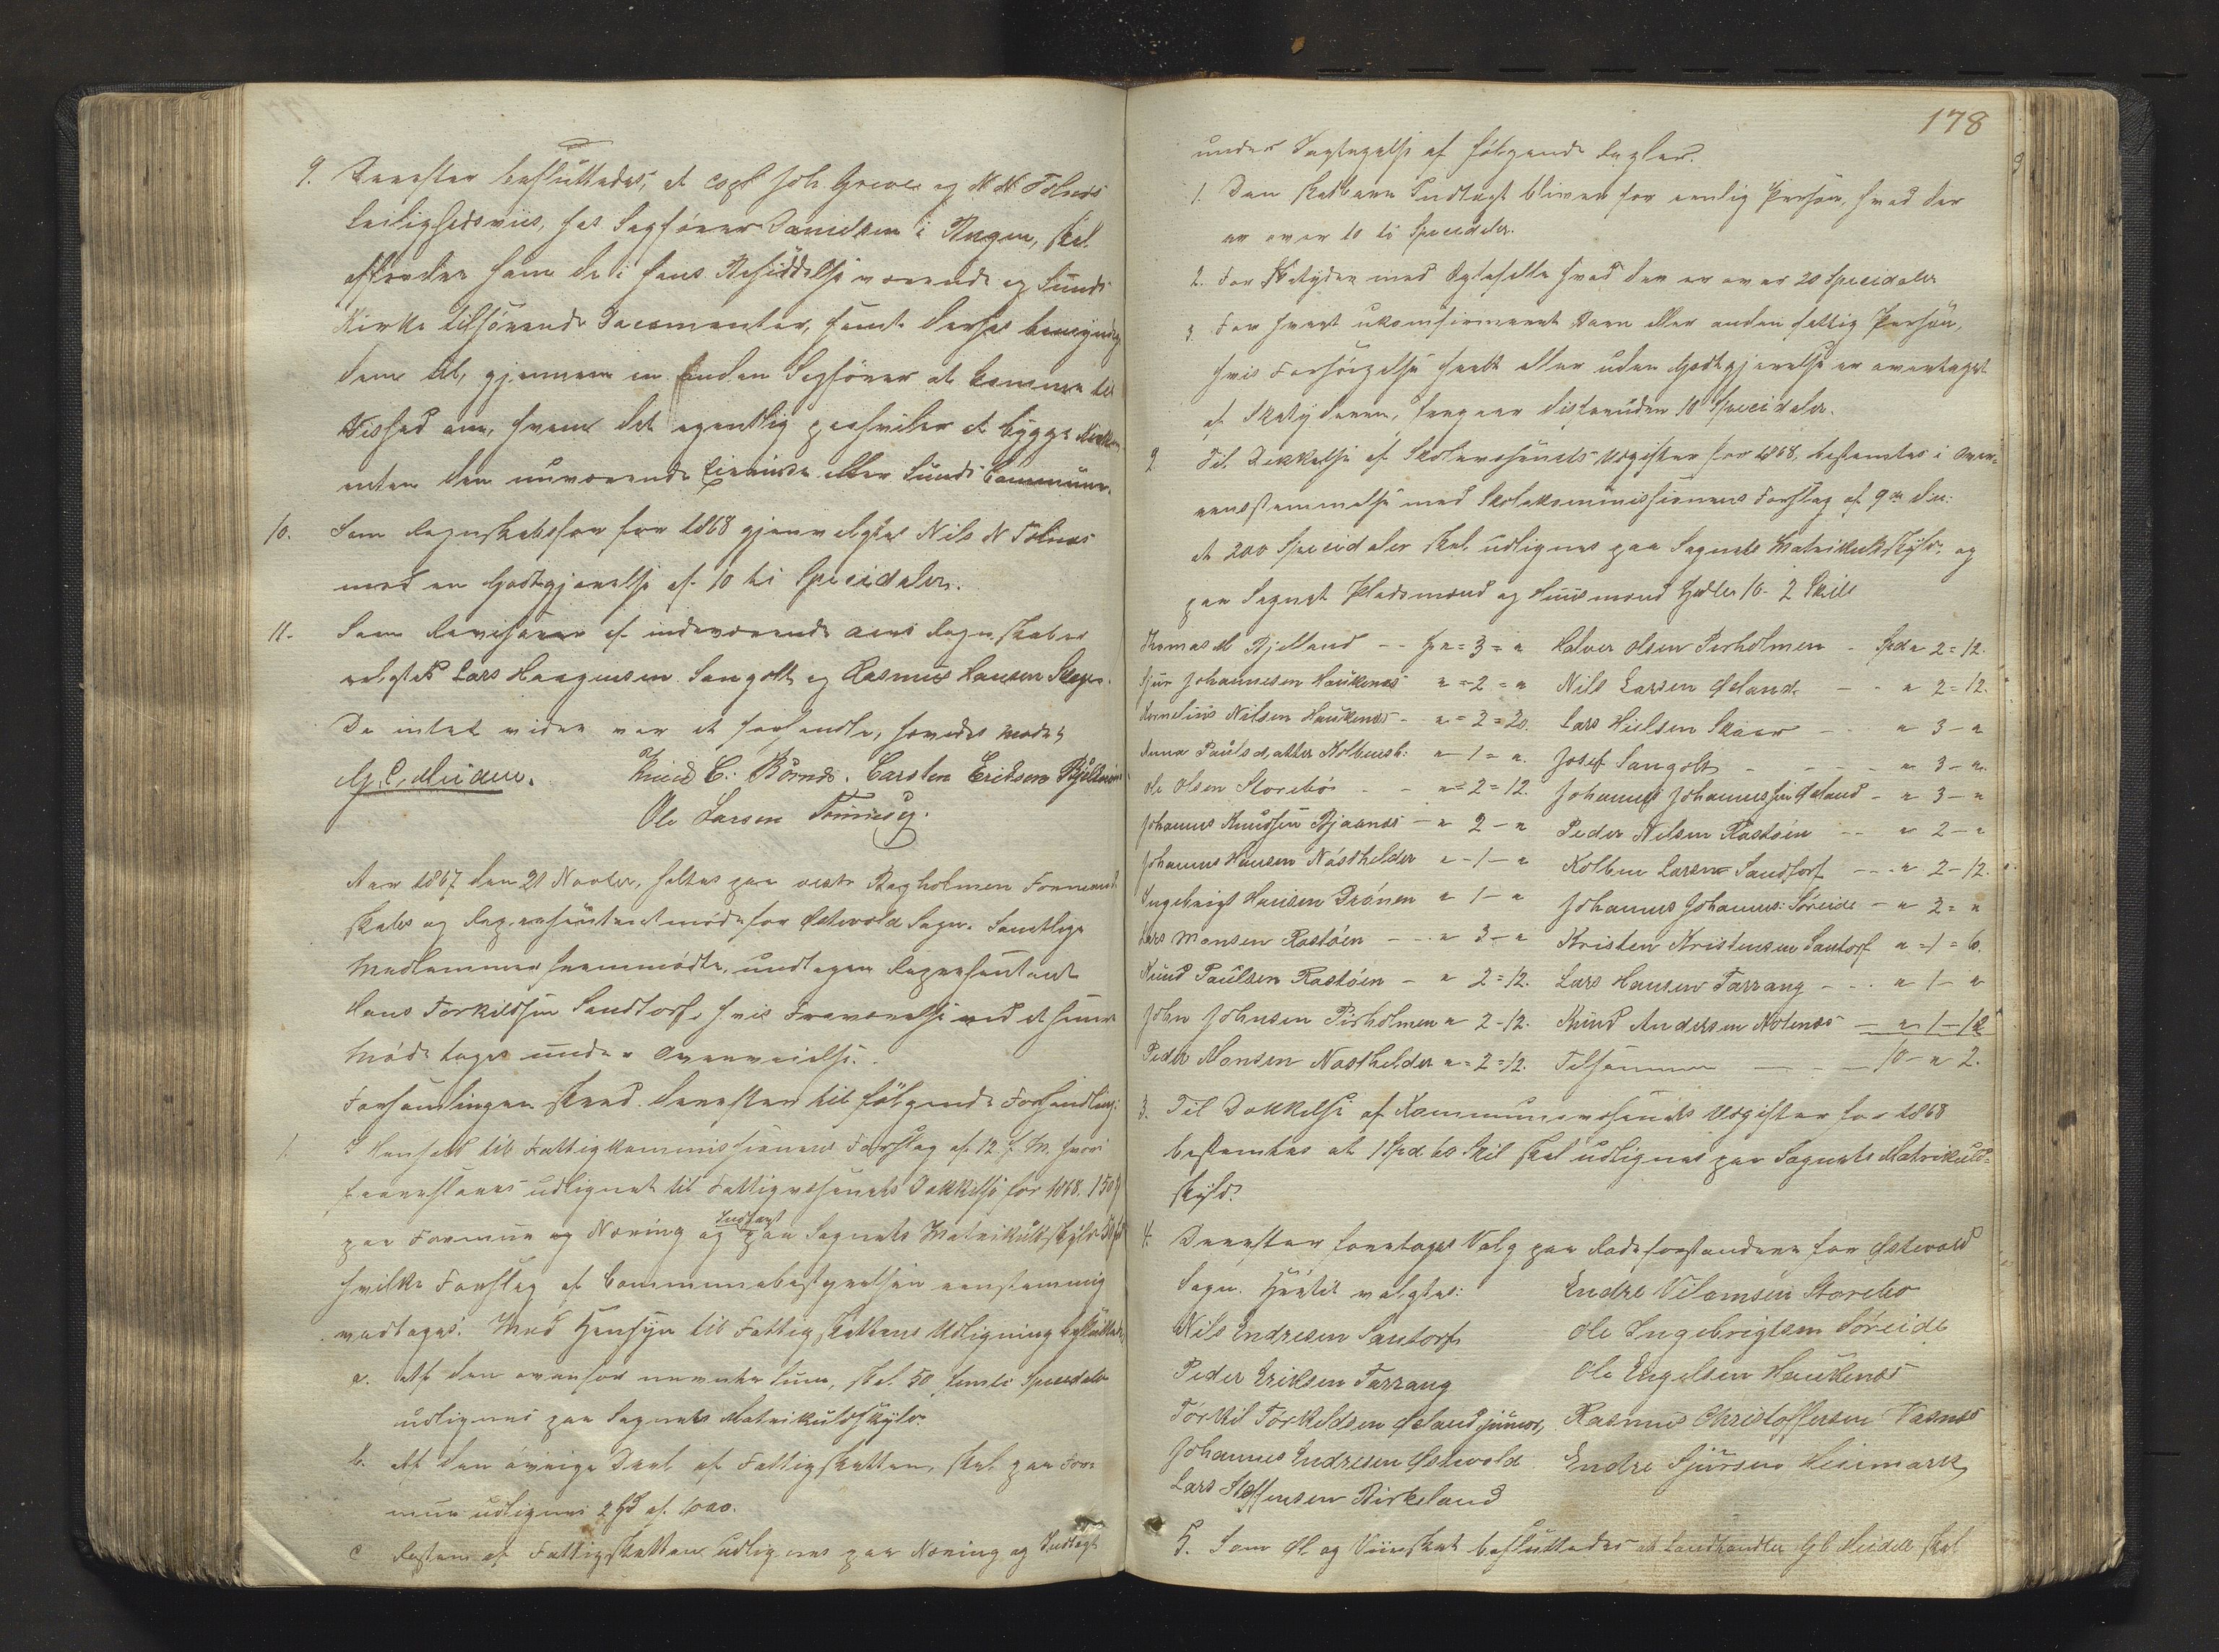 9. Derefter besluttedes, at Capt Joh. Greve og N. N. Tolnes
leilighedsviis, hos Sagfører Danielsen i Bergen, skal
affordre ham de i hans Besiddelse værende og Sunds
Kirke tilhørende Documenter, samt derhos bemyndig
dem til, gjennem en anden Sagfører at komme til
Vished om, hvem det egentlig paahviler at bygge Kirken
enten den nuværende Eierinde eller Sunds Commune.
10. Som Regnskabsfører for 1868 gjenvalgtes Nils N Tolnæs
med en Godtgjørelse af 10 ti Speciedaler.
11. Som Revisorer af indeværende Aars Regnskaber
valgtes Lars Haagensen Sangolt og Rasmus Hansen
Da intet videre var at forhandle, hævedes Mødet
G. C. Meidell. Knud C. Børnes. Carsten Eriksen
Ole Larsen
Aar 1867 den 21 Novbr, holtes paa vestre Bagholmen Formand-
skabs og Repræsentantmøde for Østevold Sogn. Samtlige
Medlemmer fremmødte, undtagen Repræsentant
Hans Torkildsen Sandtorf, hvis Fraværelse ved et senere
Møde tages under Overveielse.
Forsamlingen skred derefter til følgende Forhandling:
1. I Henhold til Fattigkommissionens Forslag af 12 f. M. hvori
foreslaaes udlignet til Fattigvæsenets Dækkelse for 1868. 150
paa Formue og Næring og Indtægt paa Sognets Matrikulskyld 50
hvilke Forslag af Communebestyrelsen eenstemmig
vedtages. Med Hensyn til Fattigskattens Udligning besluttedes
a. Af den ovenfor nævnte Sum, skal 50 femti Speciedaler
udlignes paa Sognets Matrikulskyld.
b. Af den øvrige Deel af Fattigskatten, skal paa For-
mue udlignes 2 Spd af 1000.
c Resten af Fattigskatten udlignes paa Næring og Indtægt
178
under Iagtagelse af følgende Regler.
1. Den skatbare Indtægt bliver for eenlig Person, hvad der
er over 10 ti Speciedaler.
2. For Skatyder med Egtefelle hvad der er over 20 Speciedaler
3. For hvert ukonfirmeret Barn eller anden fattig Person,
hvis Forsørgelse heelt eller uden Godtgjørelse er overtaget
af Skatyderen, fragaar desforuden 10 Speciedaler.
2 Til Dækkelse af Skolevæsenets Udgifter for 1868, bestemtes i Over-
eensstemmelse med Skolekommissionens Forslag af 9de ds.
at 200 Speciedaler skal udlignes paa Sognets Matrikulskyld, og
paa Sognets Pladsmænd og Huusmænd 10- 2 Skill
Thomas M Bjelland - - Sp " = 3 = " Halvor Olsen Pirholmen - Spd " 2 = 12.
Sjur Johannesen Haukenæs " = 2 = " Nils Larsen Øeland - - " 2 = 12.
Kornelius Nilsen Haukenæs - " = 2 = 20. Lars Nielsen Skaar - - " 3 - "
Anna Paulsdatter Kolbensh: " - 1 = ". Josef Sangolt - - - - " 3 - ".
Ole Olsen Storebø - - " = 2 = 12. Johannes Johannessen Øeland - " 3 - "
Johannes Knudsen Bjaanæs - " 2 - " Peder Nilsen Rostøen - - " 2 - "
Johannes Hansen Nøsthelder " - 1 - " Kolben Larsen Sandtorf - - - " 2 - 12.
Ingebrigt Hansen Drønen " 1 - " Johannes Johannes: Søreide - " 2 = "
Lars Monsen Rostøen - - - " 3 - " Kristen Kristensen Santorf " = 1 = 6.
Knud Paulsen Rostøen - " 2 = 12. Lars Hansen Tarrang - - - " 1 - "
John Johnsen Pirholmen " 2 - 12. Knud Andersen Notenæs - " 1 - 12
Peder Monsen Nosthelder " = 2 = 12. Tilsammen - - - 10 - " 2.
3. Til Dækkelse af Kommunevæsenets Udgifter for 1868
bestemtes at 1 Spd 60 Skil skal udlignes paa Sognets Matrikul-
skyld.
4. Derefter foretages Valg paa Rodeforstandere for Østevold
Sogn. Hertil valgtes: Endre Vilomsen Storebø
Nils Endresen Santorf Ole Ingebrigtsen Søreide
Peder Eriksen Tarrang Ole Engelsen Haukenæs
Torkil Torkildsen Øeland junior, Rasmus Christoffersen Vasnæs
Johannes Endresen Østevold Endre Sjursen Heiemark
Lars Steffensen Birkeland
5. Som Øl og Viinskat besluttedes at Landhandler G C Meidell skal